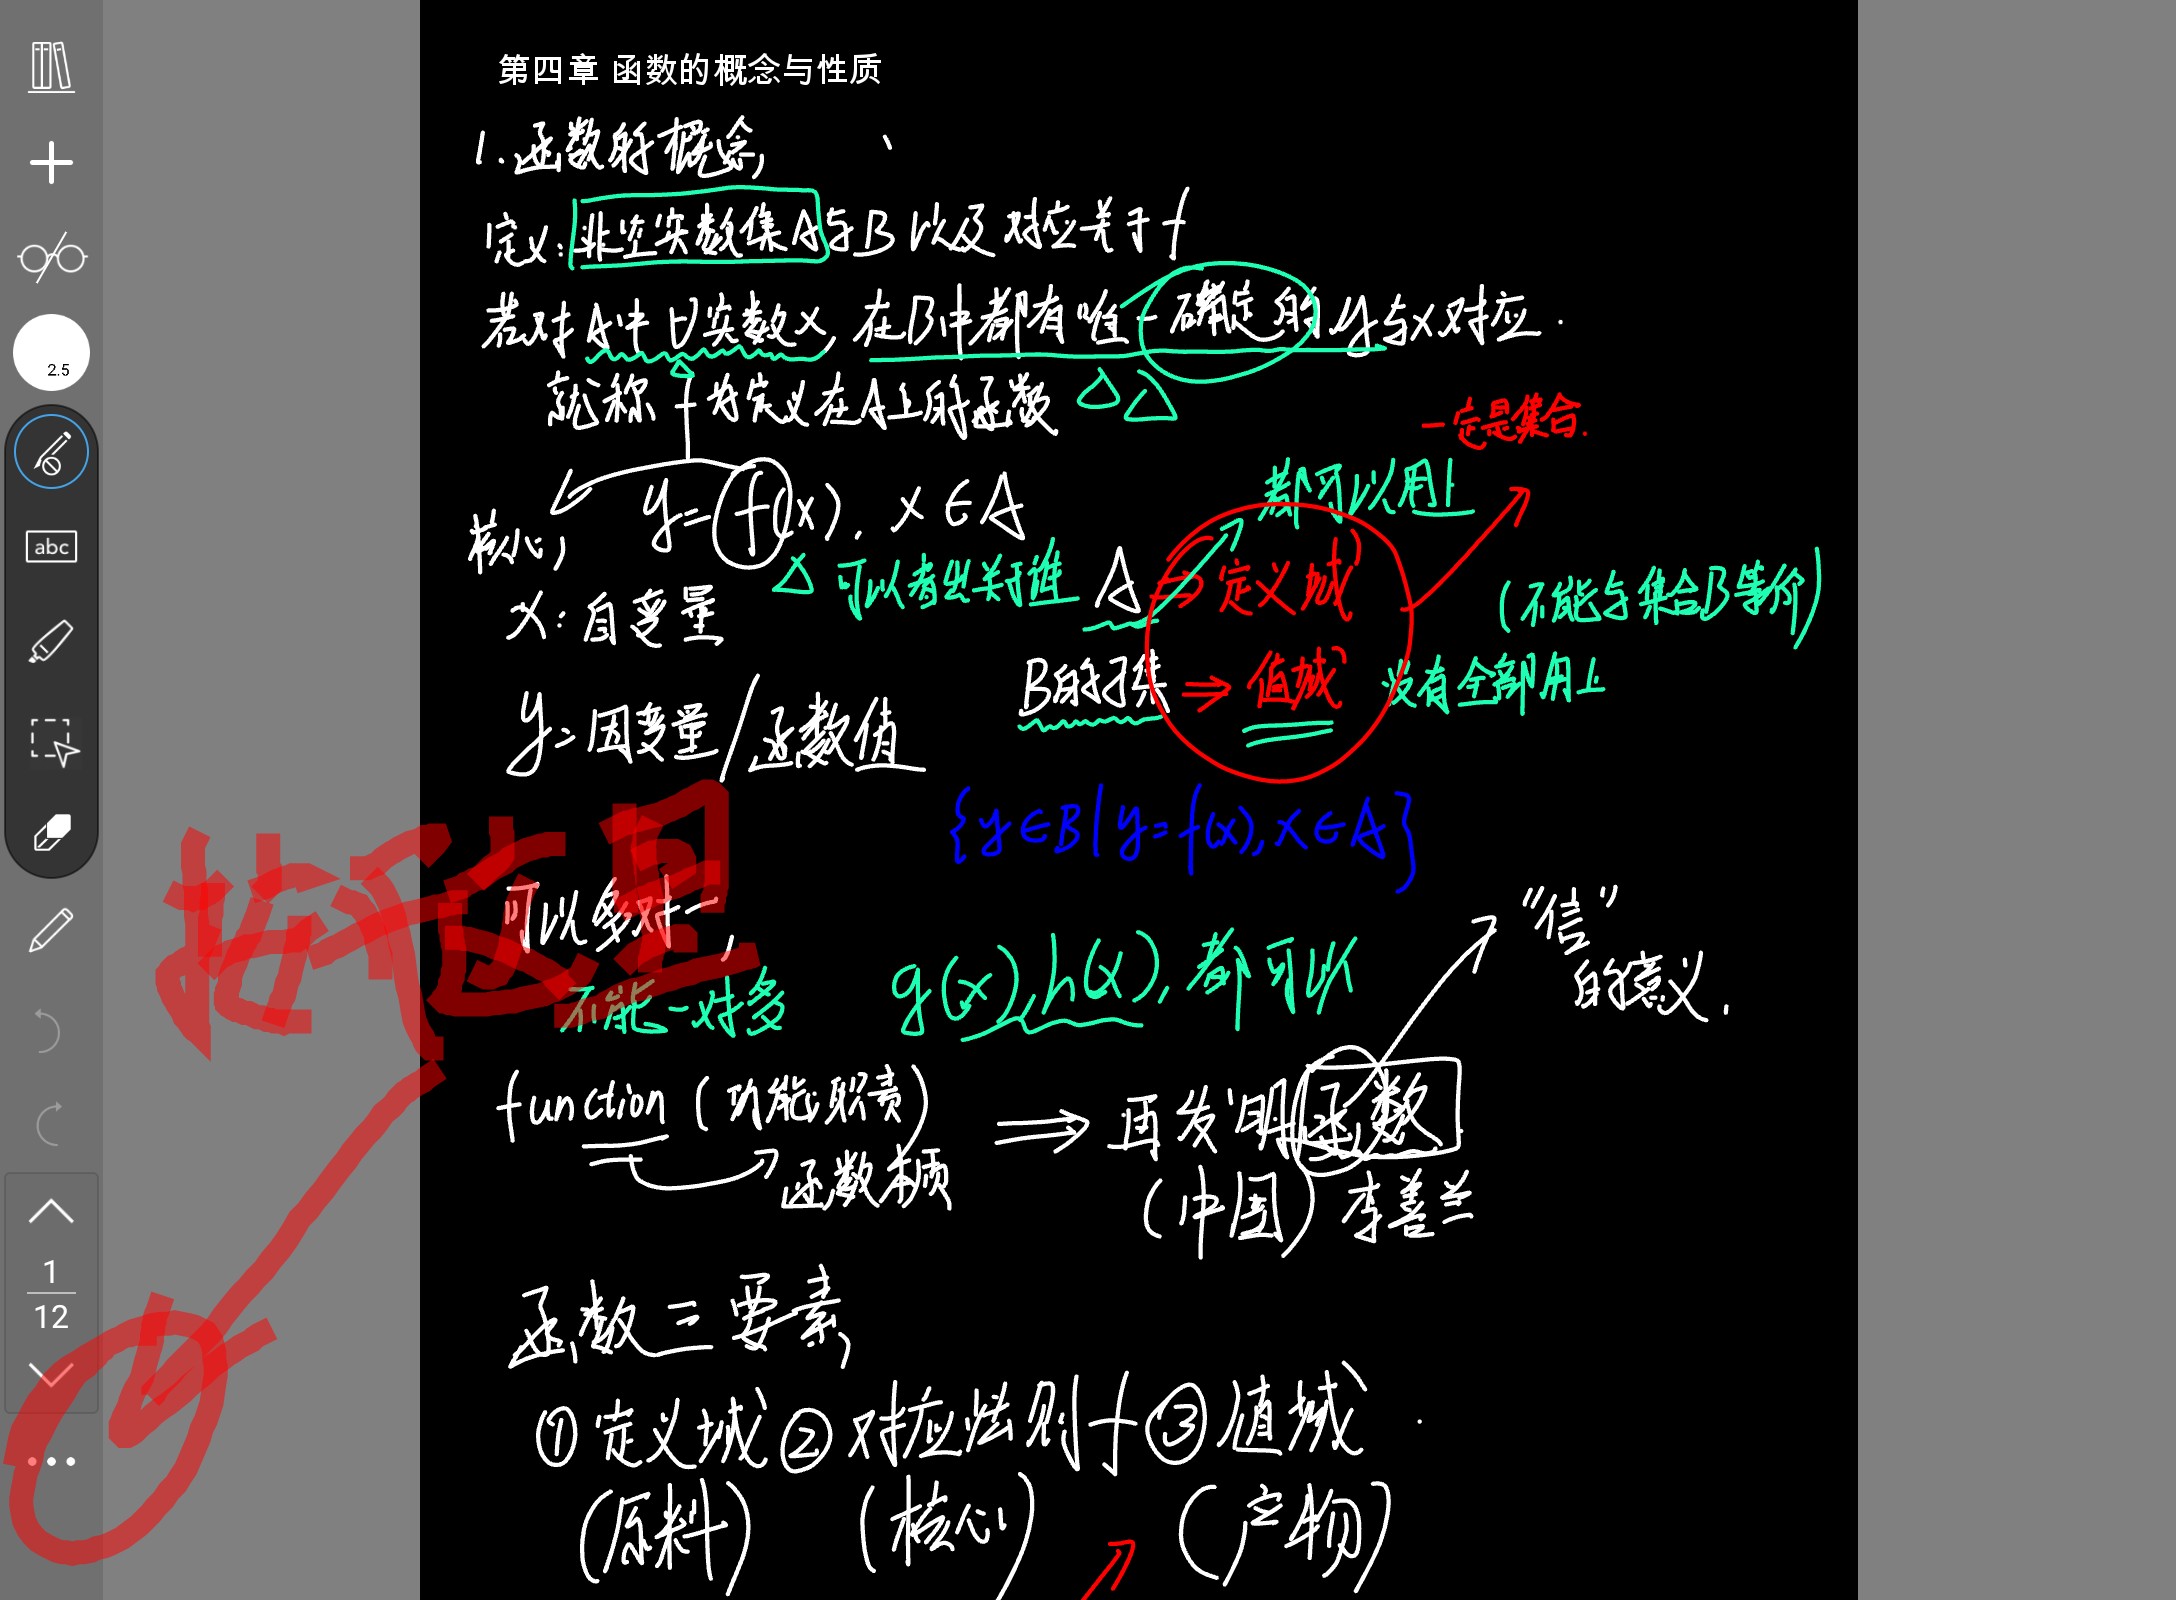 第四章 函数的概念与性质
1.函数的概念
定义:非空实数集A与B以及对应关于f
若对A中∀实数x,在B中都有唯一确定的y与x对应.
就称f为定义在A上的函数
一定是集合.
都可以用上
y=f(x), x∈A
核心
可以看出关于谁
A⇒定义域
(不能与集合B等价)
x:自变量
B的子集⇒值域
没有全部用上
y=因变量/函数值
{y∈B|y=f(x),x∈A}
可以多对一,
不能一对多
g(x),h(x),都可以
"信"
的意义.
function(功能,职责)
⇒再发明函数
函数本质
(中国)李善兰
函数三要素
①定义域②对应法则f③值域
(原料)
(核心)
(产物)
abc
2.5
1
12